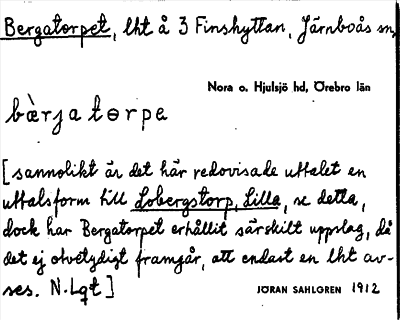 Bergatorpet, lht å 3 Finshyttan, Järnboås sn,
Nora o. Hjulsjö hd, Örebro län
bæ̀rjatɵrpa
[sannolikt är det här redovisade uttalet en
uttalsform till Lobergstorp, Lilla, se detta,
dock har Bergatorpet erhållit särskilt uppslag, då
det ej otvetydigt framgår, att endast en lht av-
ses. N. Lqt]
JÖRAN SAHLGREN 1912